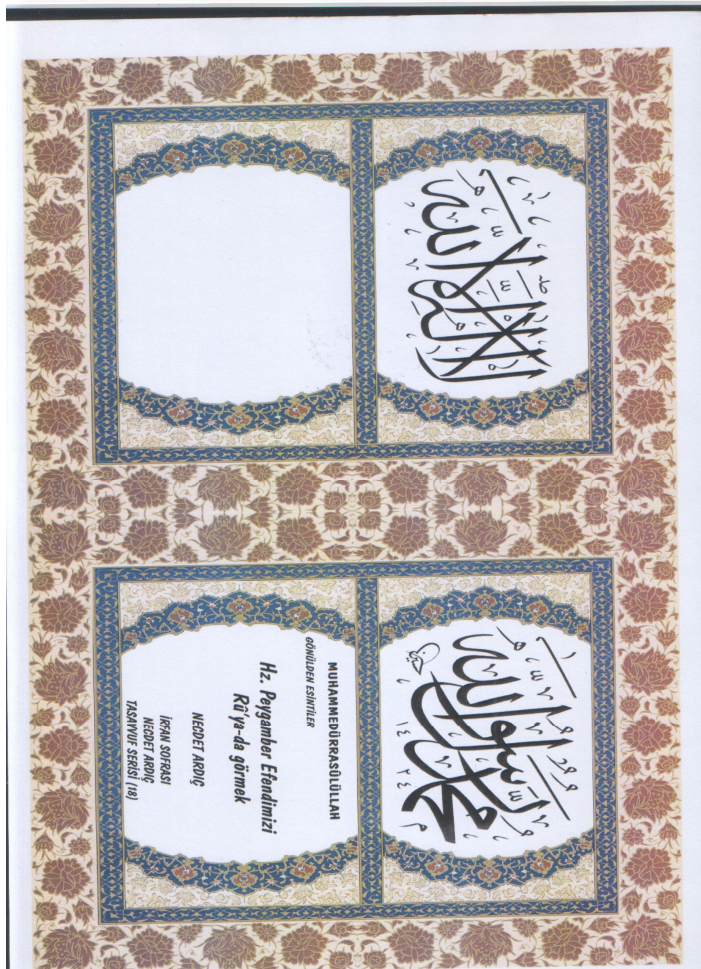 لا إله إلا الله
محمد رسول الله
١٤٢٤
MUHAMMEDÜRRASÛLÜLLAH
GÖNÜLDEN ESİNTİLER
Hz. Peygamber Efendimizi
Rü'ya-da görmek
NECDET ARDIÇ
İRFAN SOFRASI
NECDET ARDIÇ
TASAVVUF SERİSİ (18)